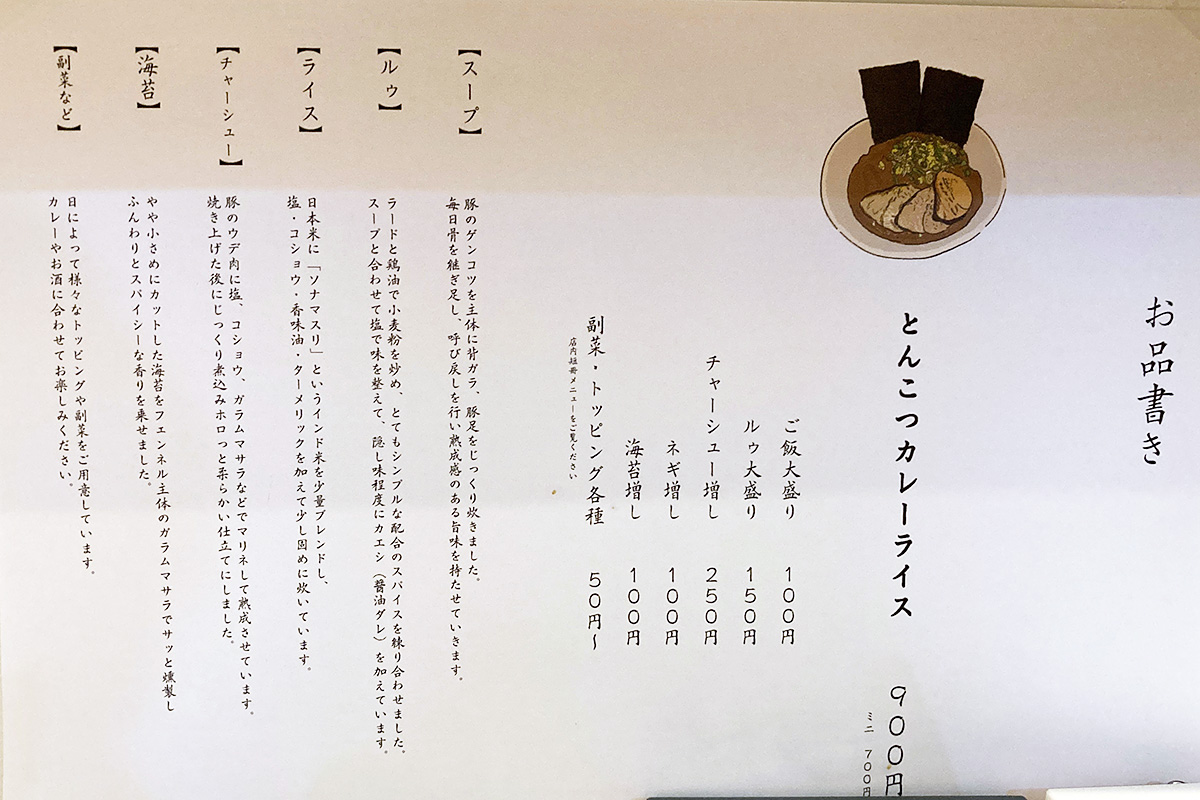 お品書き
とんこつカレーライス 900円
ミニ 700円
ご飯大盛り 100円
ルゥ大盛り 150円
チャーシュー増し 250円
ネギ増し 100円
海苔増し 100円
副菜・トッピング各種 50円〜
店内短冊メニューをご覧ください
【スープ】
豚のゲンコツを主体に背ガラ、豚足をじっくり炊きました。
毎日骨を継ぎ足し、呼び戻しを行い熟成感のある旨味を持たせていきます。
【ルゥ】
ラードと鶏油で小麦粉を炒め、とてもシンプルな配合のスパイスを練り合わせました。
スープと合わせて塩で味を整えて、隠し味程度にカエシ（醤油ダレ）を加えています。
【ライス】
日本米に「ソナマスリ」というインド米を少量ブレンドし、
塩・コショウ・香味油・ターメリックを加えて少し固めに炊いています。
【チャーシュー】
豚のウデ肉に塩、コショウ、ガラムマサラなどでマリネして熟成させています。
焼き上げた後にじっくり煮込みホロっと柔らかい仕立てにしました。
【海苔】
やや小さめにカットした海苔をフェンネル主体のガラムマサラでサッと燻製し
ふんわりとスパイシーな香りを乗せました。
【副菜など】
日によって様々なトッピングや副菜をご用意しています。
カレーやお酒に合わせてお楽しみください。